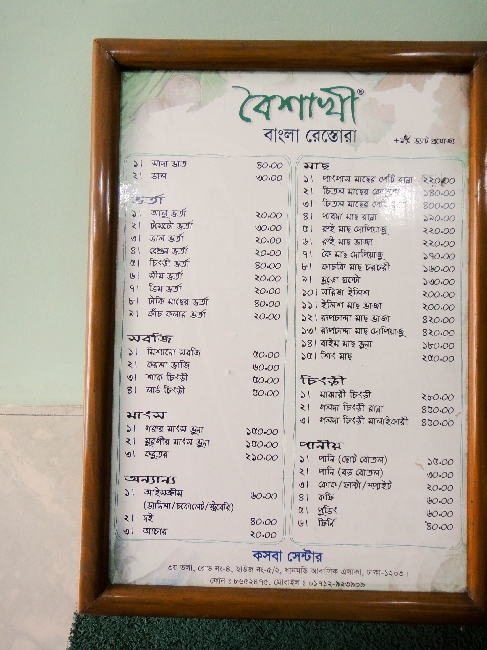 বৈশাখী®
বাংলা রেস্তোরা
ভ্যাট প্রযোজ্য
১। সাদা ভাত ৪০.০০
২। ডাল ৩০.০০
ভর্তা
১। আলু ভর্তা ২০.০০
২। টমেটো ভর্তা ৩০.০০
৩। ডাল ভর্তা ২০.০০
৪। বেগুন ভর্তা ২০.০০
৫। চিংড়ী ভর্তা ৪০.০০
৬। সীম ভর্তা ২০.০০
৭। ডিম ভর্তা ২০.০০
৮। টাকি মাছের ভর্তা ৪০.০০
৯। কাঁচ কলার ভর্তা ২০.০০
সবজি
১। মিশানো সবজি ৫০.০০
২। করলা ভাজি ৬০.০০
৩। শাক চিংড়ী ৫০.০০
৪। লাউ চিংড়ী ৫০.০০
মাংস
১। গরুর মাংস ভুনা ১৫০.০০
২। মুরগীর মাংস ভুনা ১৫০.০০
৩। কবুতর ২১০.০০
অন্যান্য
১। আইসক্রীম ৬০.০০
(ভ্যানিলা/চকোলেট/স্ট্রবেরি)
২। দই ৪০.০০
৩। আচার ২০.০০
মাছ
১। পাংগাস মাছের পেটি রান্না ২২০.০০
২। চিতল মাছের ১৪০.০০
৩। চিতল মাছের ৪০০.০০
৪। পাবদা মাছ রান্না
৫। রুই মাছ দোপিয়াজু ২২০.০০
৬। রুই মাছ ভাজা ২২০.০০
৭। কৈ মাছ দোপিয়াজু ১৭০.০০
৮। কাচকি মাছ চরচরী ১৬০.০০
৯। মুড়ো ঘন্টো ১৩০.০০
১০। সরিষা ইলিশ ২০০.০০
১১। ইলিশ মাছ ভাজা ২০০.০০
১২। রূপচান্দা মাছ ভাজা ৪২০.০০
১৩। রূপচান্দা মাছ দোপিয়াজু ৪২০.০০
১৪। বাইম মাছ ভুনা ১৮০.০০
১৫। শিং মাছ ২৫০.০০
চিংড়ী
১। মাঝারী চিংড়ী ২৮০.০০
২। গলদা চিংড়ী রান্না ৪৫০.০০
৩। গলদা চিংড়ী মালাইকারী ৪৫০.০০
পানীয়
১। পানি (ছোট বোতল) ১৫.০০
২। পানি (বড় বোতল) ৩০.০০
৩। কোক/ফান্টা/স্প্রাইট ২০.০০
৪। কফি ৬০.০০
৫। পুডিং ৬০.০০
৬। ফিরনি ৪০.০০
কসবা সেন্টার
৩য় তলা, রোড নং-৪, হাউজ নং-৫/২, ধানমন্ডি আবাসিক এলাকা, ঢাকা-১২০৫।
ফোন : ৮৬৫২৪৭৫, মোবাইল : ০১৭১২-৯২৩৯০৯